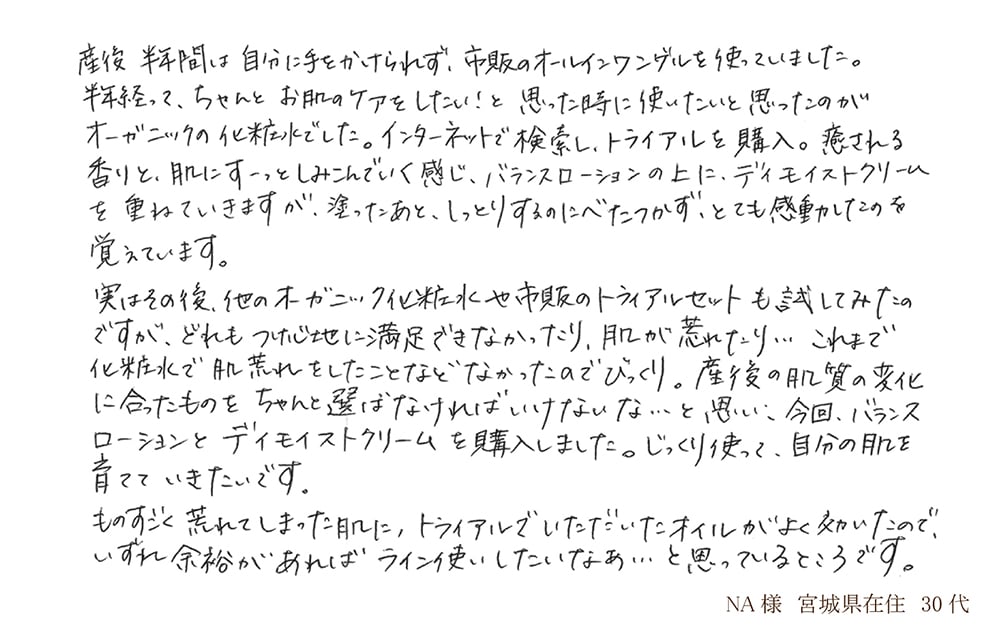 産後 半年間は 自分に手をかけられず、市販のオールインワンゲルを使っていました。
半年経って、ちゃんと お肌のケアをしたい！と 思った時に使いたいと思ったのが
オーガニックの化粧水でした。インターネットで検索し、トライアルを購入。癒される
香りと、肌にすーっとしみこんでいく感じ、バランスローションの上に、ディモイストクリーム
を 重ねていきますが、塗ったあと、しっとりするのにべたつかず、とても感動したのを
覚えています。
実はその後、他のオーガニック化粧水や市販のトライアルセットも試してみたの
ですが、どれも つけ心地に満足できなかったり、肌が荒れたり… これまで
化粧水で肌荒れをしたことなどなかったのでびっくり。産後の肌質の変化
に合ったものを ちゃんと選ばなければいけないな…と思い、今回、バランス
ローションと ディモイストクリームを購入しました。じっくり使って、自分の肌を
育てて いきたいです。
ものすごく 荒れてしまった肌に、トライアルでいただいたオイルがよく効いたので、
いずれ 余裕があれば ライン使いしたいなあ…と思っているところです。
NA様 宮城県在住 30代